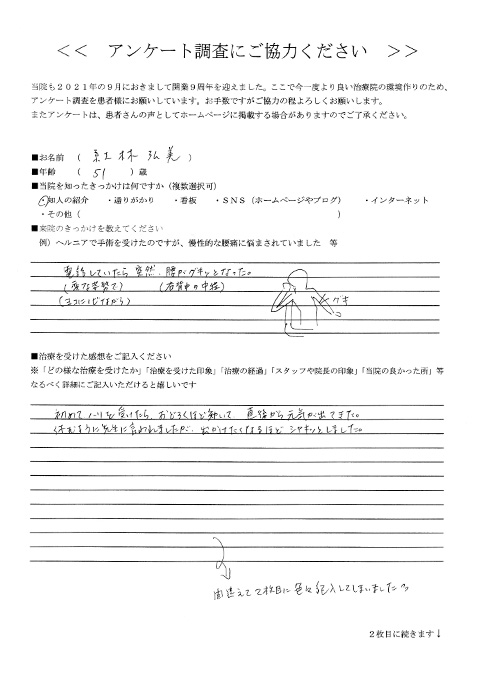 << アンケート調査にご協力ください >>
当院も2021年の9月におきまして開業9周年を迎えました。ここで今一度より良い治療院の環境作りのため、
アンケート調査を患者様にお願いしています。お手数ですがご協力の程よろしくお願いします。
またアンケートは、患者さんの声としてホームページに掲載する場合がありますのでご了承ください。
■お名前 ( 紅林 弘美 )
■年齢 ( 51 )歳
■当院を知ったきっかけは何ですか(複数選択可)
・知人の紹介 ・通りがかり ・看板 ・SNS(ホームページやブログ) ・インターネット
・その他( )
■来院のきっかけを教えてください
例)ヘルニアで手術を受けたのですが、慢性的な腰痛に悩まされていました 等
電話していたら突然、腰がグキッとなった。
(変な姿勢で) (右背中の中程)
(ヨコになりながら)
グキ
■治療を受けた感想をご記入ください
※「どの様な治療を受けたか」「治療を受けた印象」「治療の経過」「スタッフや院長の印象」「当院の良かった所」等
なるべく詳細にご記入いただけると嬉しいです
初めてハリを受けたら、おどろくほど効いて、直後から元気が出てきた。
休むように先生に言われましたが、出かけたくなるほどシャキッとしました。
間違えて2枚目に色々記入してしまいました
2枚目に続きます↓